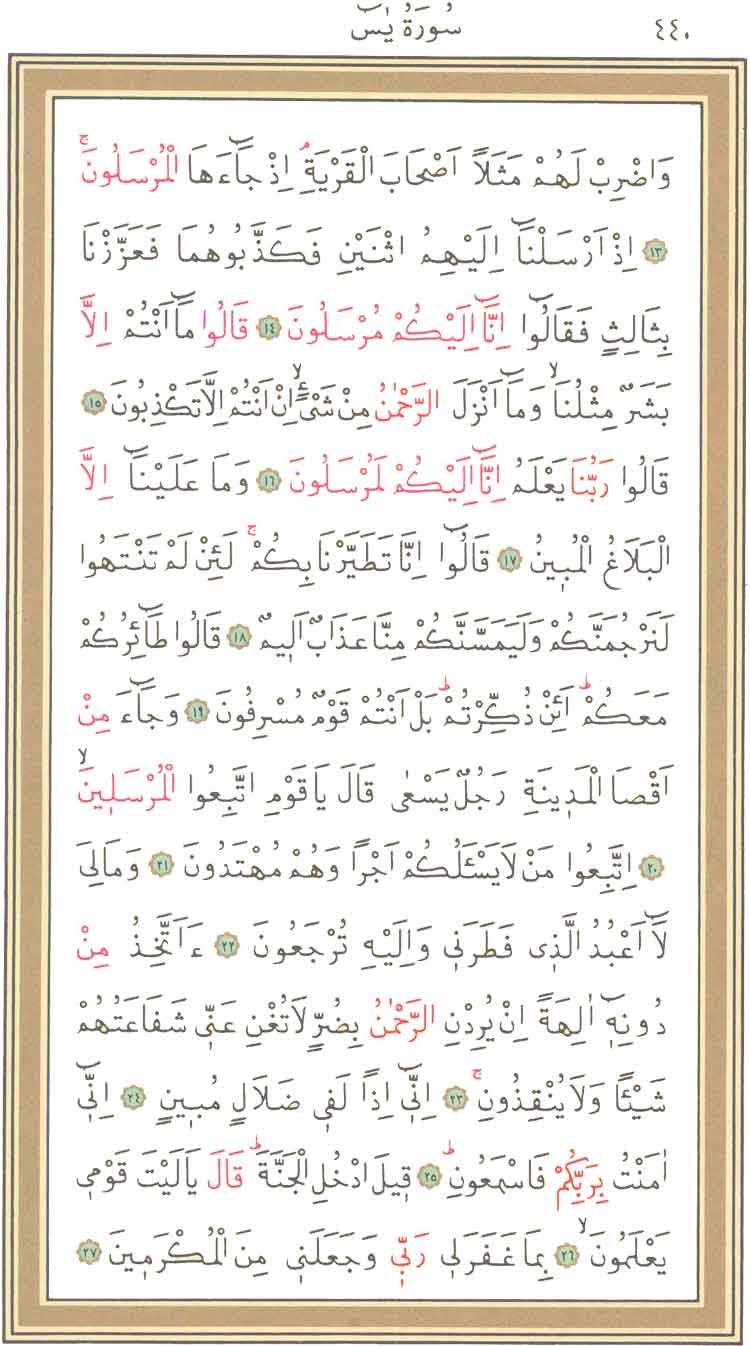 سُورَةُ يٰسۤ ٤٤٠
وَاضْرِبْ لَهُمْ مَثَلًا اَصْحَابَ الْقَرْيَةِۢ اِذْ جَٓاءَهَا الْمُرْسَلُونَۚ
﴿١٣﴾ اِذْ اَرْسَلْنَٓا اِلَيْهِمُ اثْنَيْنِ فَكَذَّبُوهُمَا فَعَزَّزْنَا
بِثَالِثٍ فَقَالُٓوا اِنَّٓا اِلَيْكُمْ مُرْسَلُونَ ﴿١٤﴾ قَالُوا مَٓا اَنْتُمْ اِلَّا
بَشَرٌ مِثْلُنَاۙ وَمَٓا اَنْزَلَ الرَّحْمٰنُ مِنْ شَيْءٍۙ اِنْ اَنْتُمْ اِلَّا تَكْذِبُونَ ﴿١٥﴾
قَالُوا رَبُّنَا يَعْلَمُ اِنَّٓا اِلَيْكُمْ لَمُرْسَلُونَ ﴿١٦﴾ وَمَا عَلَيْنَٓا اِلَّا
الْبَلَاغُ الْمُبٖينُ ﴿١٧﴾ قَالُٓوا اِنَّا تَطَيَّرْنَا بِكُمْۚ لَئِنْ لَمْ تَنْتَهُوا
لَنَرْجُمَنَّكُمْ وَلَيَمَسَّنَّكُمْ مِنَّا عَذَابٌ اَلٖيمٌ ﴿١٨﴾ قَالُوا طَٓائِرُكُمْ
مَعَكُمْؕ اَئِنْ ذُكِّرْتُمْؕ بَلْ اَنْتُمْ قَوْمٌ مُسْرِفُونَ ﴿١٩﴾ وَجَٓاءَ مِنْ
اَقْصَا الْمَدٖينَةِ رَجُلٌ يَسْعٰى قَالَ يَا قَوْمِ اتَّبِعُوا الْمُرْسَلٖينَۙ
﴿٢٠﴾ اِتَّبِعُوا مَنْ لَا يَسْـَٔلُكُمْ اَجْرًا وَهُمْ مُهْتَدُونَ ﴿٢١﴾ وَمَا لِيَ
لَٓا اَعْبُدُ الَّذٖي فَطَرَنٖي وَاِلَيْهِ تُرْجَعُونَ ﴿٢٢﴾ ءَاَتَّخِذُ مِنْ
دُونِهٖٓ اٰلِهَةً اِنْ يُرِدْنِ الرَّحْمٰنُ بِضُرٍّ لَا تُغْنِ عَنّٖي شَفَاعَتُهُمْ
شَيْـًٔا وَلَا يُنْقِذُونِۚ ﴿٢٣﴾ اِنّٖٓي اِذًا لَفٖي ضَلَالٍ مُبٖينٍ ﴿٢٤﴾ اِنّٖٓي
اٰمَنْتُ بِرَبِّكُمْ فَاسْمَعُونِؕ ﴿٢٥﴾ قٖيلَ ادْخُلِ الْجَنَّةَؕ قَالَ يَا لَيْتَ قَوْمٖي
يَعْلَمُونَۙ ﴿٢٦﴾ بِمَا غَفَرَ لٖي رَبّٖي وَجَعَلَنٖي مِنَ الْمُكْرَمٖينَ ﴿٢٧﴾